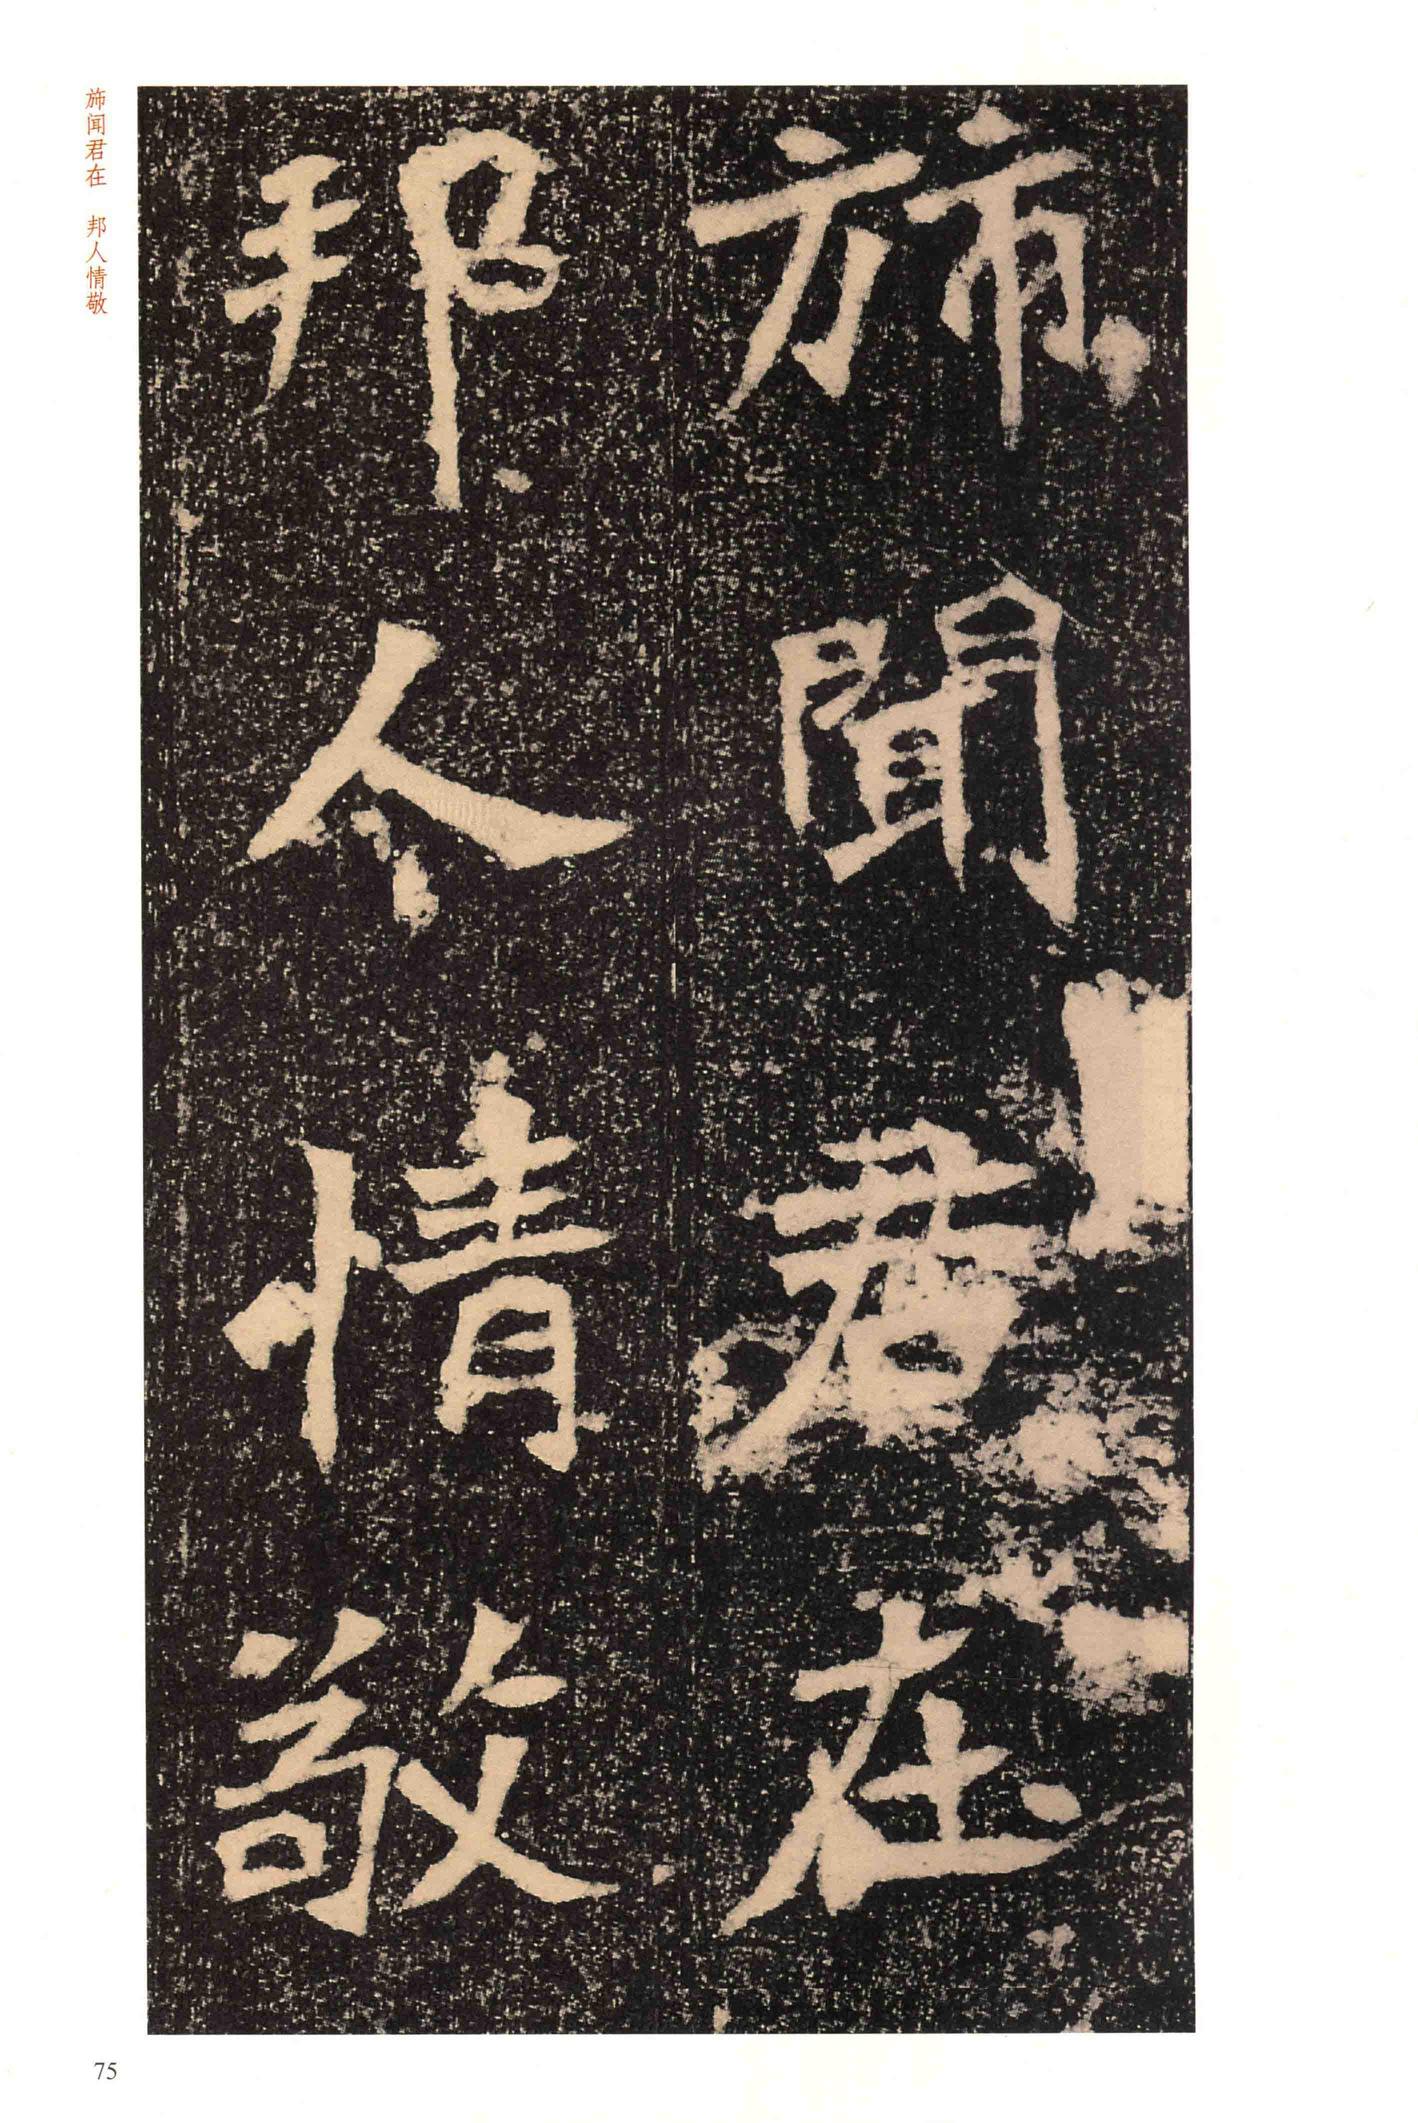 斾聞君在
邦人情敬
斾闻君在 邦人情敬
75